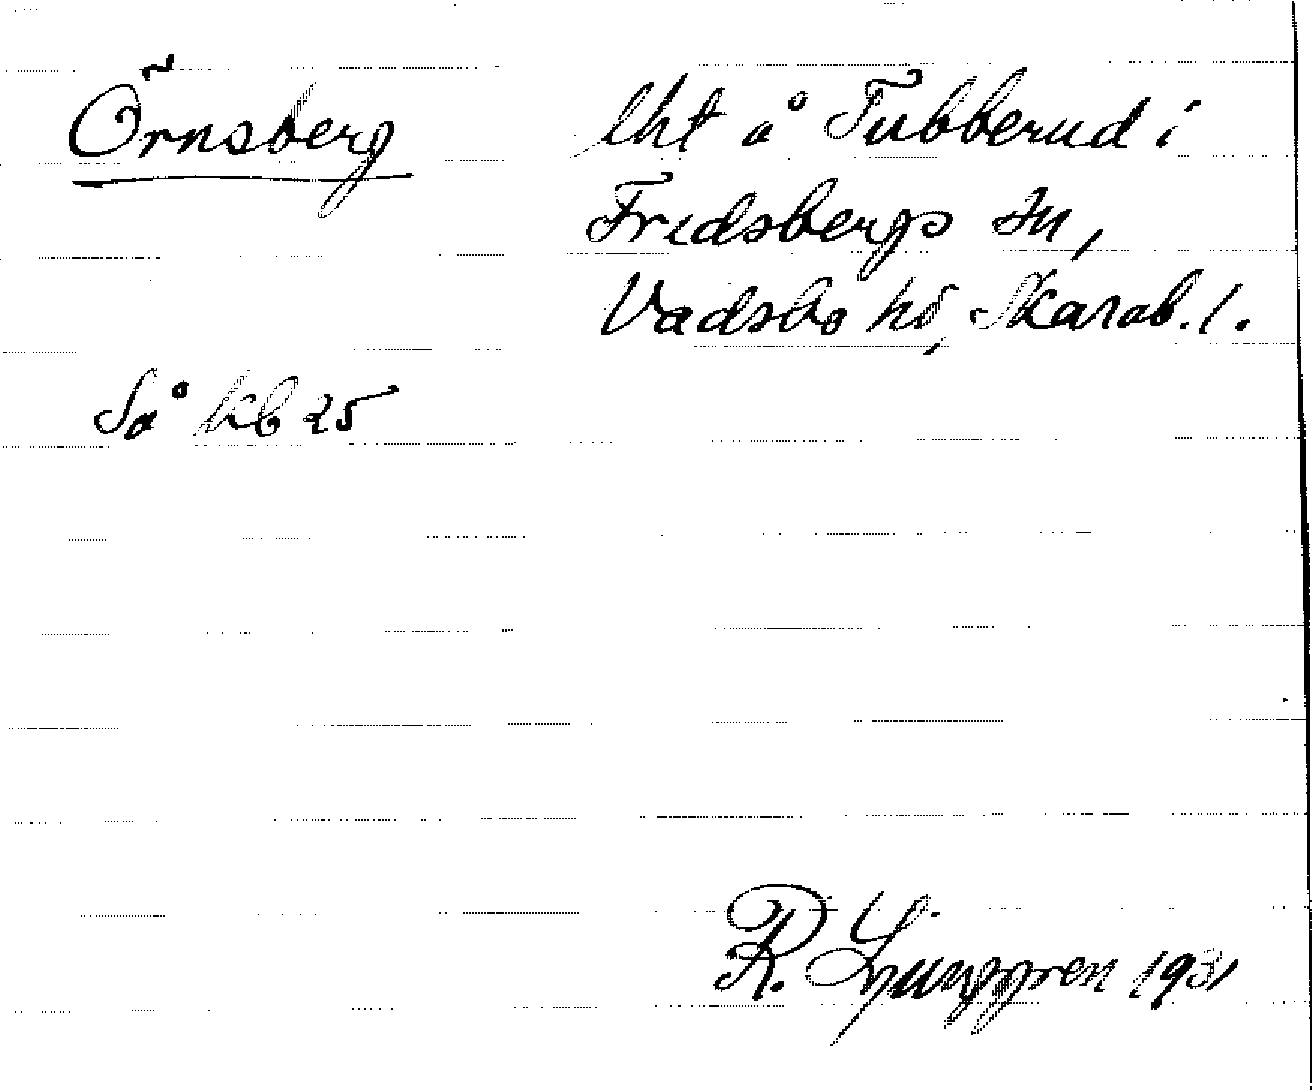 Örnsberg
lht å Tubberud i
Fredsbergs sn,
Vadsbo hd, Skarab. l.
Så kb 25
R. Ljunggren 1931